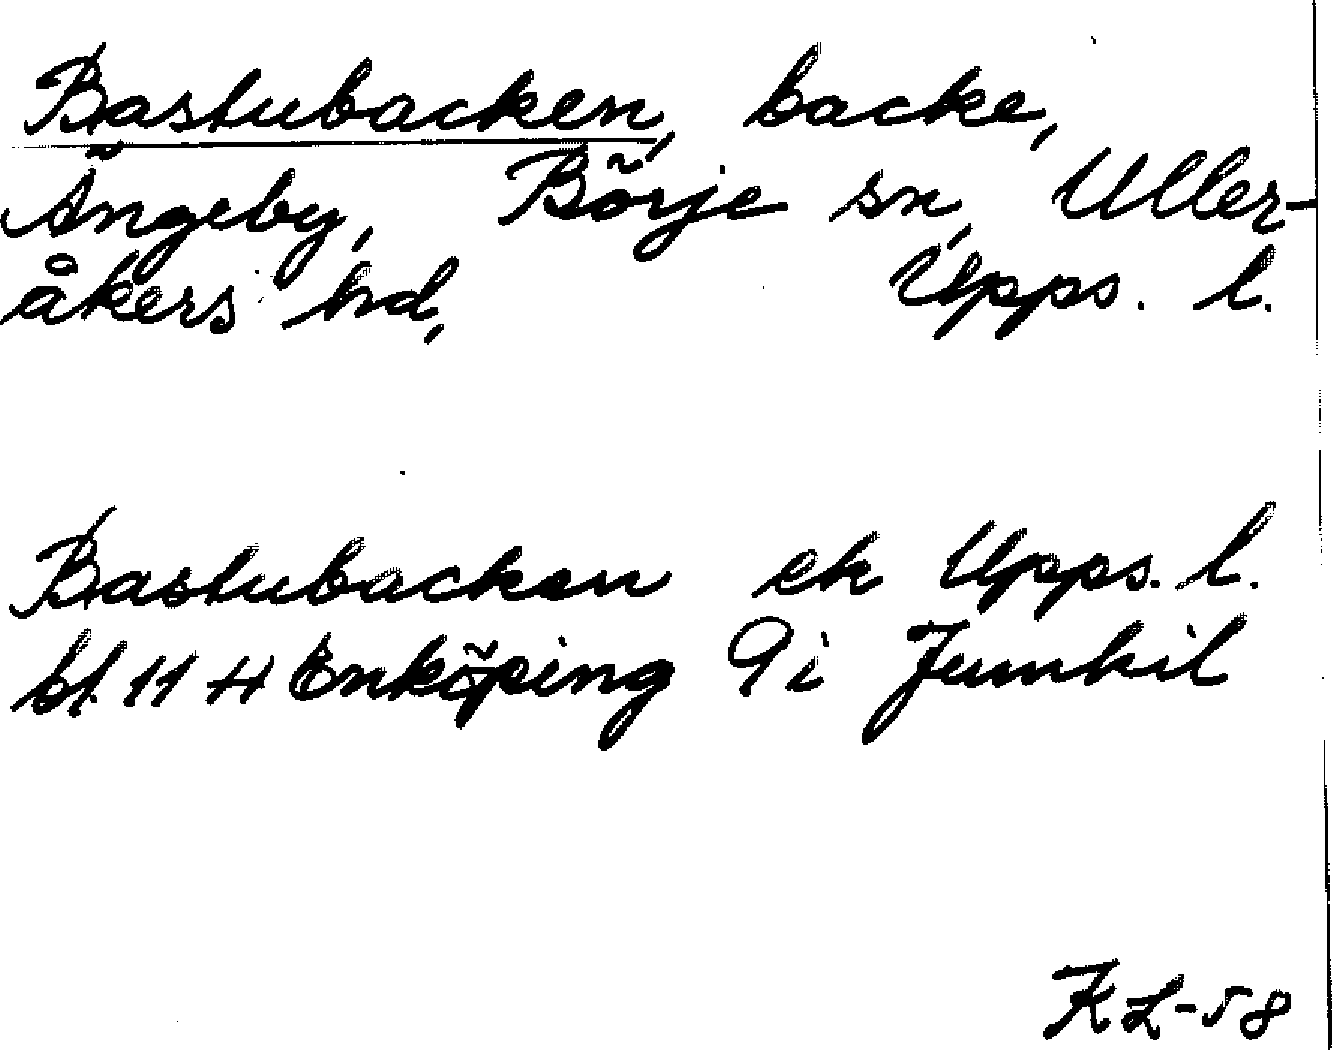 Bastubacken, backe,
Ängeby, Börje sn, Uller-
åkers hd, Upps. l.
Bastubacken ek Upps. l.
bl. 11 H Enköping 9i Jumkil
KL-58